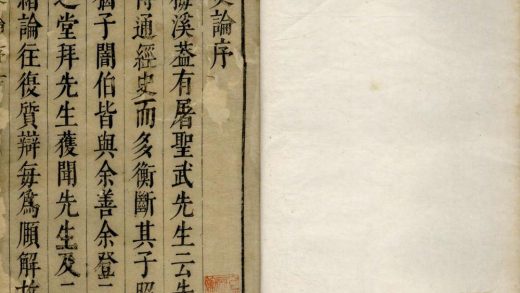 論序
梅溪蓋有屠聖武先生云先
通經史而多衡斷其子
猶子闇伯皆與余善余登二
之堂拜先生獲聞先生及二
緒論往復質辯每爲願解故